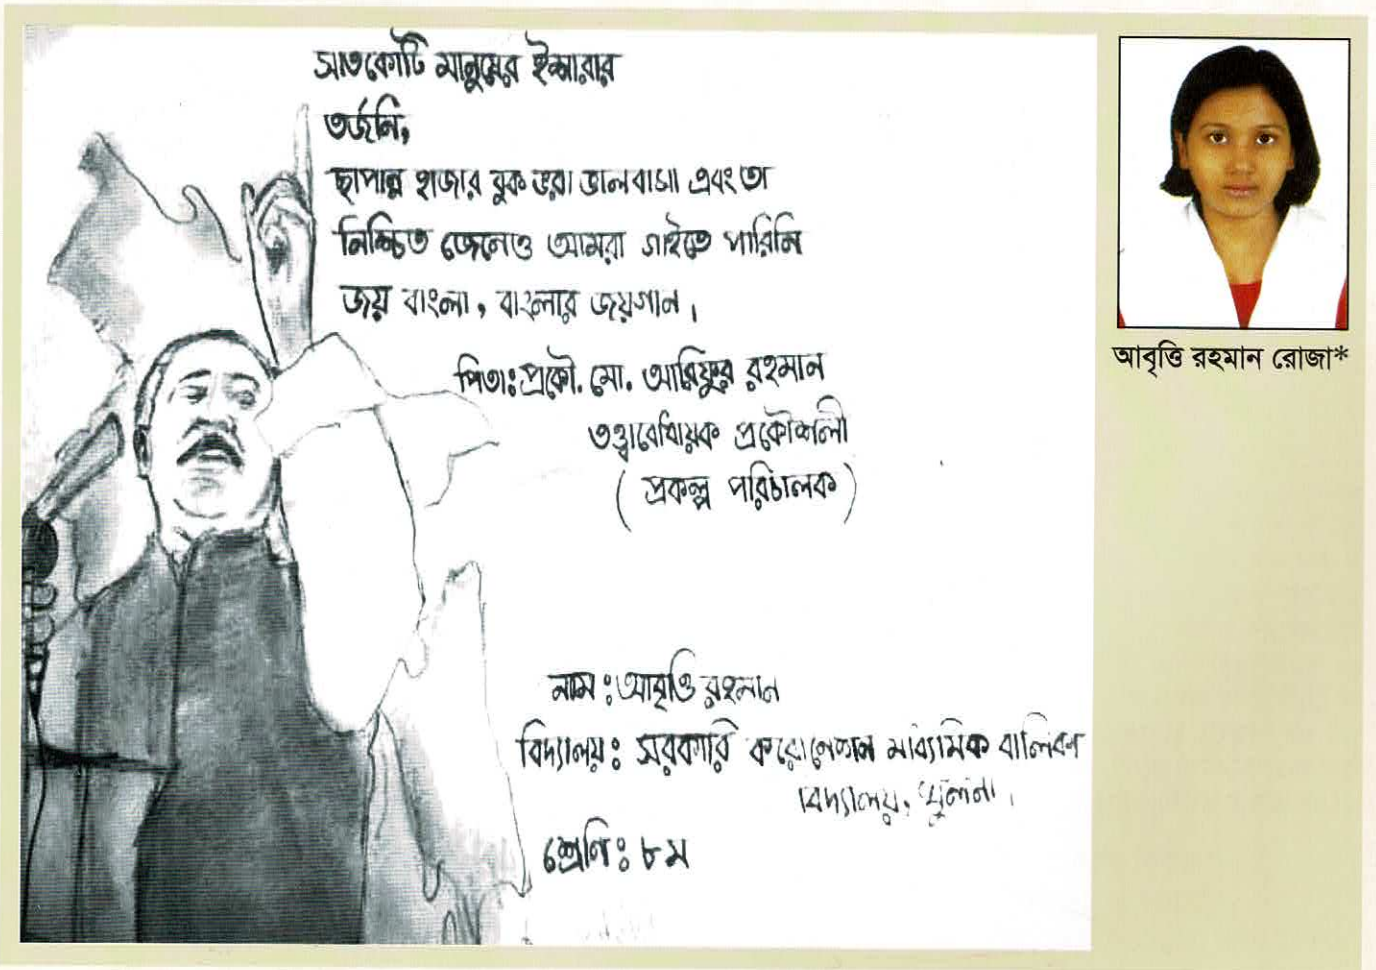 সাতকোটি মানুষের ইশারার
তর্জনি,
ছাপান্ন হাজার বুক ভরা ভালবাসা এবং তা
নিশ্চিত জেনেও আমরা গাইতে পারিনি
জয় বাংলা, বাংলার জয়গান।
পিতাঃ প্রকৌ. মো. আরিফুর রহমান
তত্ত্বাবেধায়ক প্রকৌশলী
(প্রকল্প পরিচালক)
নাম : আবৃত্তি রহমান
বিদ্যালয়ঃ সরকারি করোনেশন মাধ্যমিক বালিকা
বিদ্যালয়, খুলনা।
শ্রেণিঃ ৮ম
আবৃত্তি রহমান রোজা*